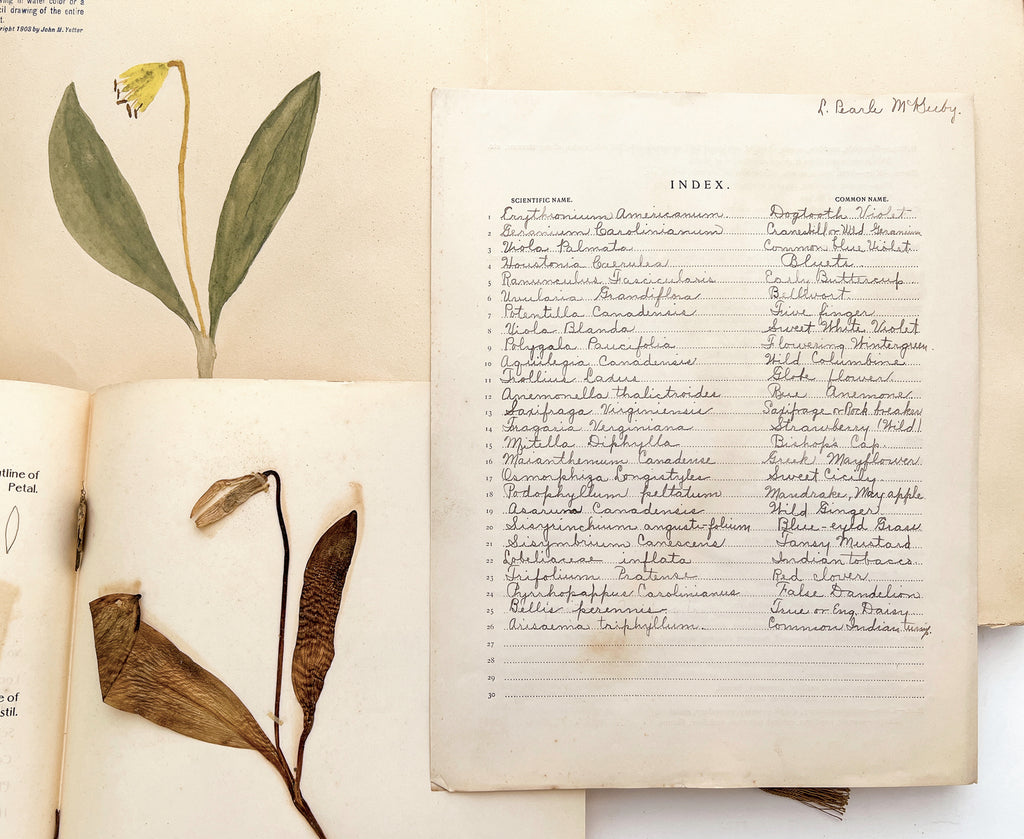 ing in water color or a
cil drawing of the entire
t.
right 1903 by John M. Yetter
L. Pearle McKeeby.
INDEX.
SCIENTIFIC NAME. COMMON NAME.
1 Erythronium Americanum Dogtooth Violet
2 Geranium Carolinianum Cranesbill or Wild Geranium
3 Viola Palmata Common blue Violet
4 Houstonia Caerulea Bluets
5 Ranunculus Fascicularis Early Buttercup
6 Uvularia Grandiflora Bellwort
7 Potentilla Canadensis Five finger
8 Viola Blanda Sweet White Violet
9 Polygala Paucifolia Flowering Wintergreen
10 Aquilegia Canadensis Wild Columbine
11 Trollius Laxus Globe flower
12 Anemonella thalictroides Rue Anemone
13 Saxifraga Virginiensis Saxifrage or Rock breaker
14 Fragaria Virginiana Strawberry (Wild)
15 Mitella Diphylla Bishop's Cap
16 Maianthemum Canadense Mayflower
17 Osmorphiza Longistyles Sweet Cicily
18 Podophyllum peltatum Mandrake, May apple
19 Asarum Canadensis Wild Ginger
20 Sisyrinchium angusti-folium Blue-eyed Grass
21 Sisymbrium Canescens Tansy Mustard
22 Lobeliaceae inflata Indian tobacco
23 Trifolium Pratense Red clover
24 Pyrrhopappus Carolinianus False Dandelion
25 Bellis perennis True or Eng. Daisy
26 Arisaema triphyllum Common Indian turnip.
27
28
29
30
utline of
Petal.
e of
stil.